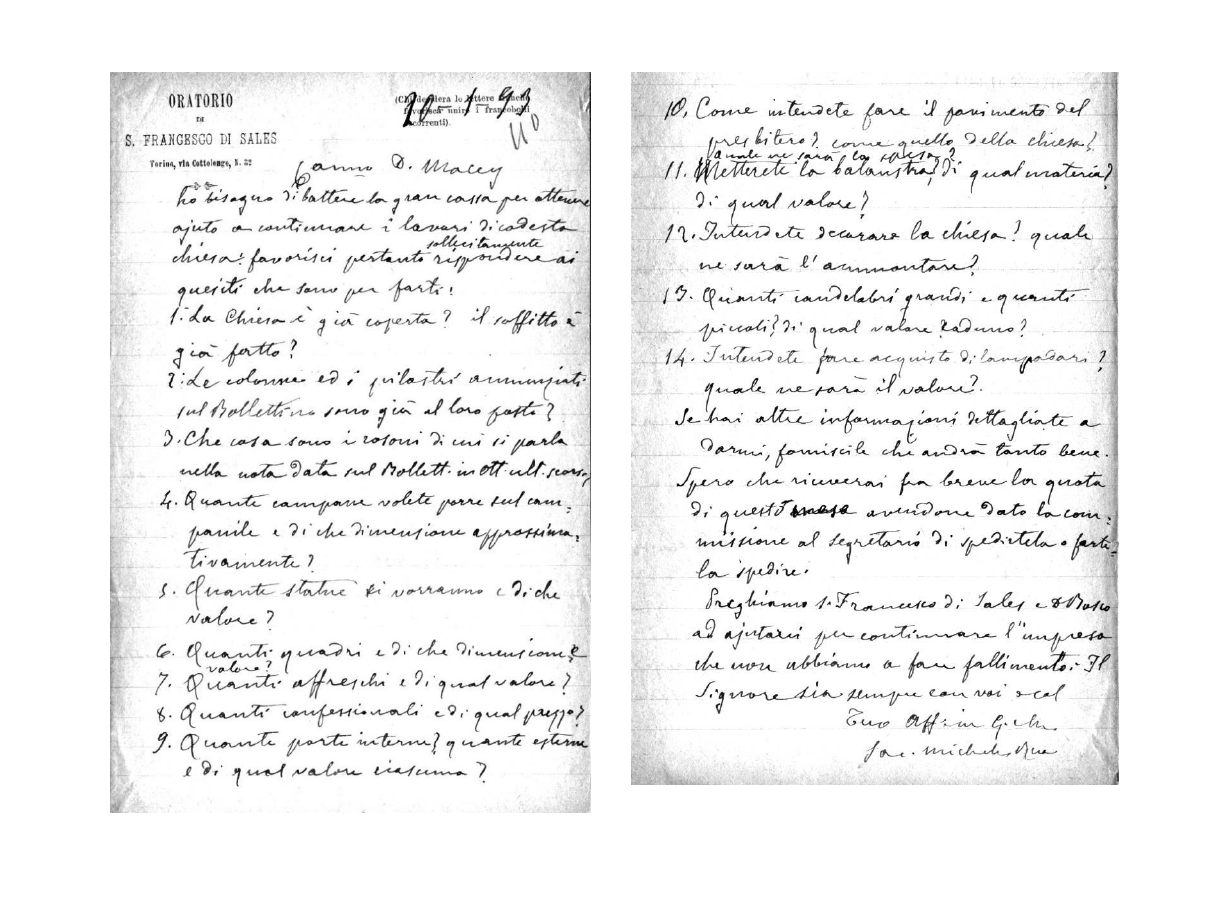 ORATORIO
DI
S. FRANCESCO DI SALES
Torino, via Cottolengo, N. 32
(Chi desidera lo lettere
favorisca unire i francobolli
occorrenti).
20-1-93
110
Carmo D. Macey
ho bisogno di battere la gran cassa per ottenere
ajuto a continuare i lavori di codesta
sollecitamente
chiesa: favorisci pertanto rispondere ai
quesiti che sono per farti:
1. La Chiesa è già coperta? il soffitto è
già fatto?
2. Le colonne ed i pilastri annunziati
sul Bollettino sono già al loro posto?
3. Che cosa sono i rosoni di cui si parla
nella nota data sul Bollett. in Ott. ult. scorso,
4. Quante campane volete porre sul cam-
panile e di che dimensione approssima-
tivamente?
5. Quante statue si vorranno e di che
valore?
6. Quanti quadri e di che dimensione e
valore?
7. Quanti affreschi e di qual valore?
8. Quanti confessionali e di qual prezzo?
9. Quante porte interne? quante esterne
e di qual valore ciascuna?
10. Come intendete fare il pavimento del
presbitero? come quello della chiesa?
quale ne sarà la spesa?
11. Metterete la balaustra? di qual materia?
di qual valore?
12. Intendete decorare la chiesa? quale
ne sarà l'ammontare?
13. Quanti candelabri grandi e quanti
piccoli? di qual valore caduno?
14. Intendete fare acquisto di lampadari?
quale ne sarà il valore?
Se hai altre informazioni dettagliate a
darmi, forniscile che andrà tanto bene.
Spero che riceverai fra breve la quota
di questo mese avendone dato la com-
missione al segretario di spedirtela o farte-
la spedire.
Preghiamo S. Francesco di Sales e D Bosco
ad ajutarci per continuare l'impresa
che non abbiamo a fare fallimento. Il
Signore sia sempre con voi e col
Tuo Aff.mo in G. e M.
Sac. Michele Rua